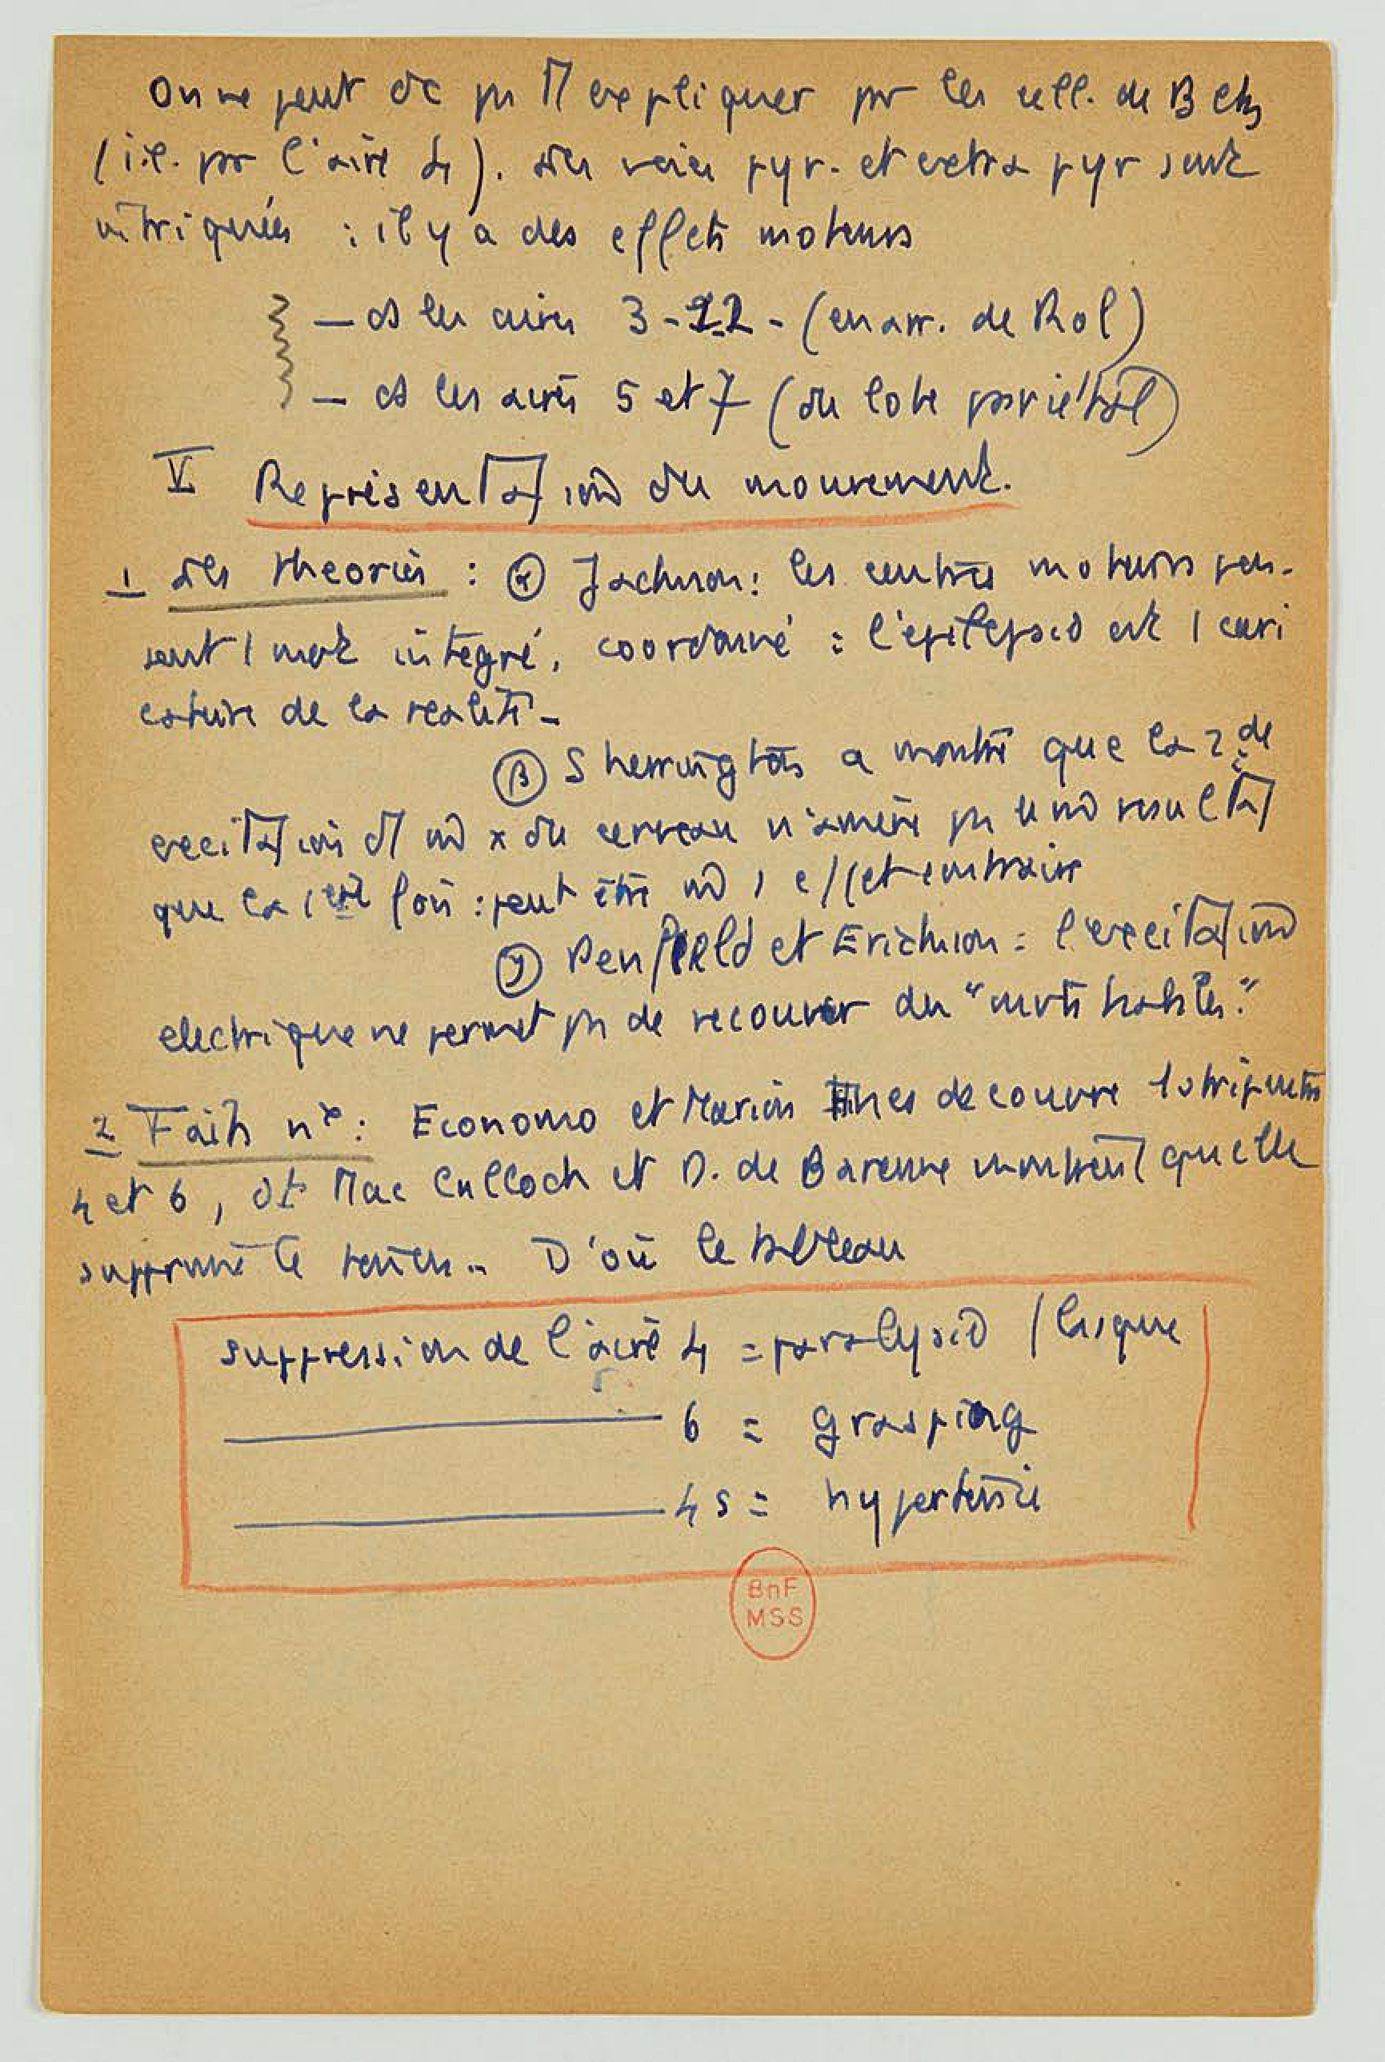 On ne peut dc pas tt expliquer par les cell. de Betz
(i.e. par l'aire 4). Les voies pyr. et extra pyr sont
intriquées : il y a des effets moteurs
— ds les aires 3-1-2- (en arr. de Rol)
— ds les aires 5 et 7 (du lobe pariétal)
V Représentation du mouvement.
1 Les theories : α Jackson: les centres moteurs pen-
sent 1 mvt intégré, coordonné : l'épilepsie est 1 cari
cature de la realité -
β Sherrington a montré que la 2de
excitation d' un x du cerveau n'amène pas le m resultat
que la 1ere fois : peut être un effet contraire
γ Penfield et Erickson : l'excitation
electrique ne permet pas de recouvrer des "mvts habiles."
2 Faits nx : Economo et Marion Hines decouvre 1 strip entre
4 et 6, dt Mac Culloch et D. de Barenne montrent qu'elle
supprime le tonus.. D'où le tableau
suppression de l'aire 4 = paralysie flasque
6 = grasping
4 s = hypertonie
BnF
MSS